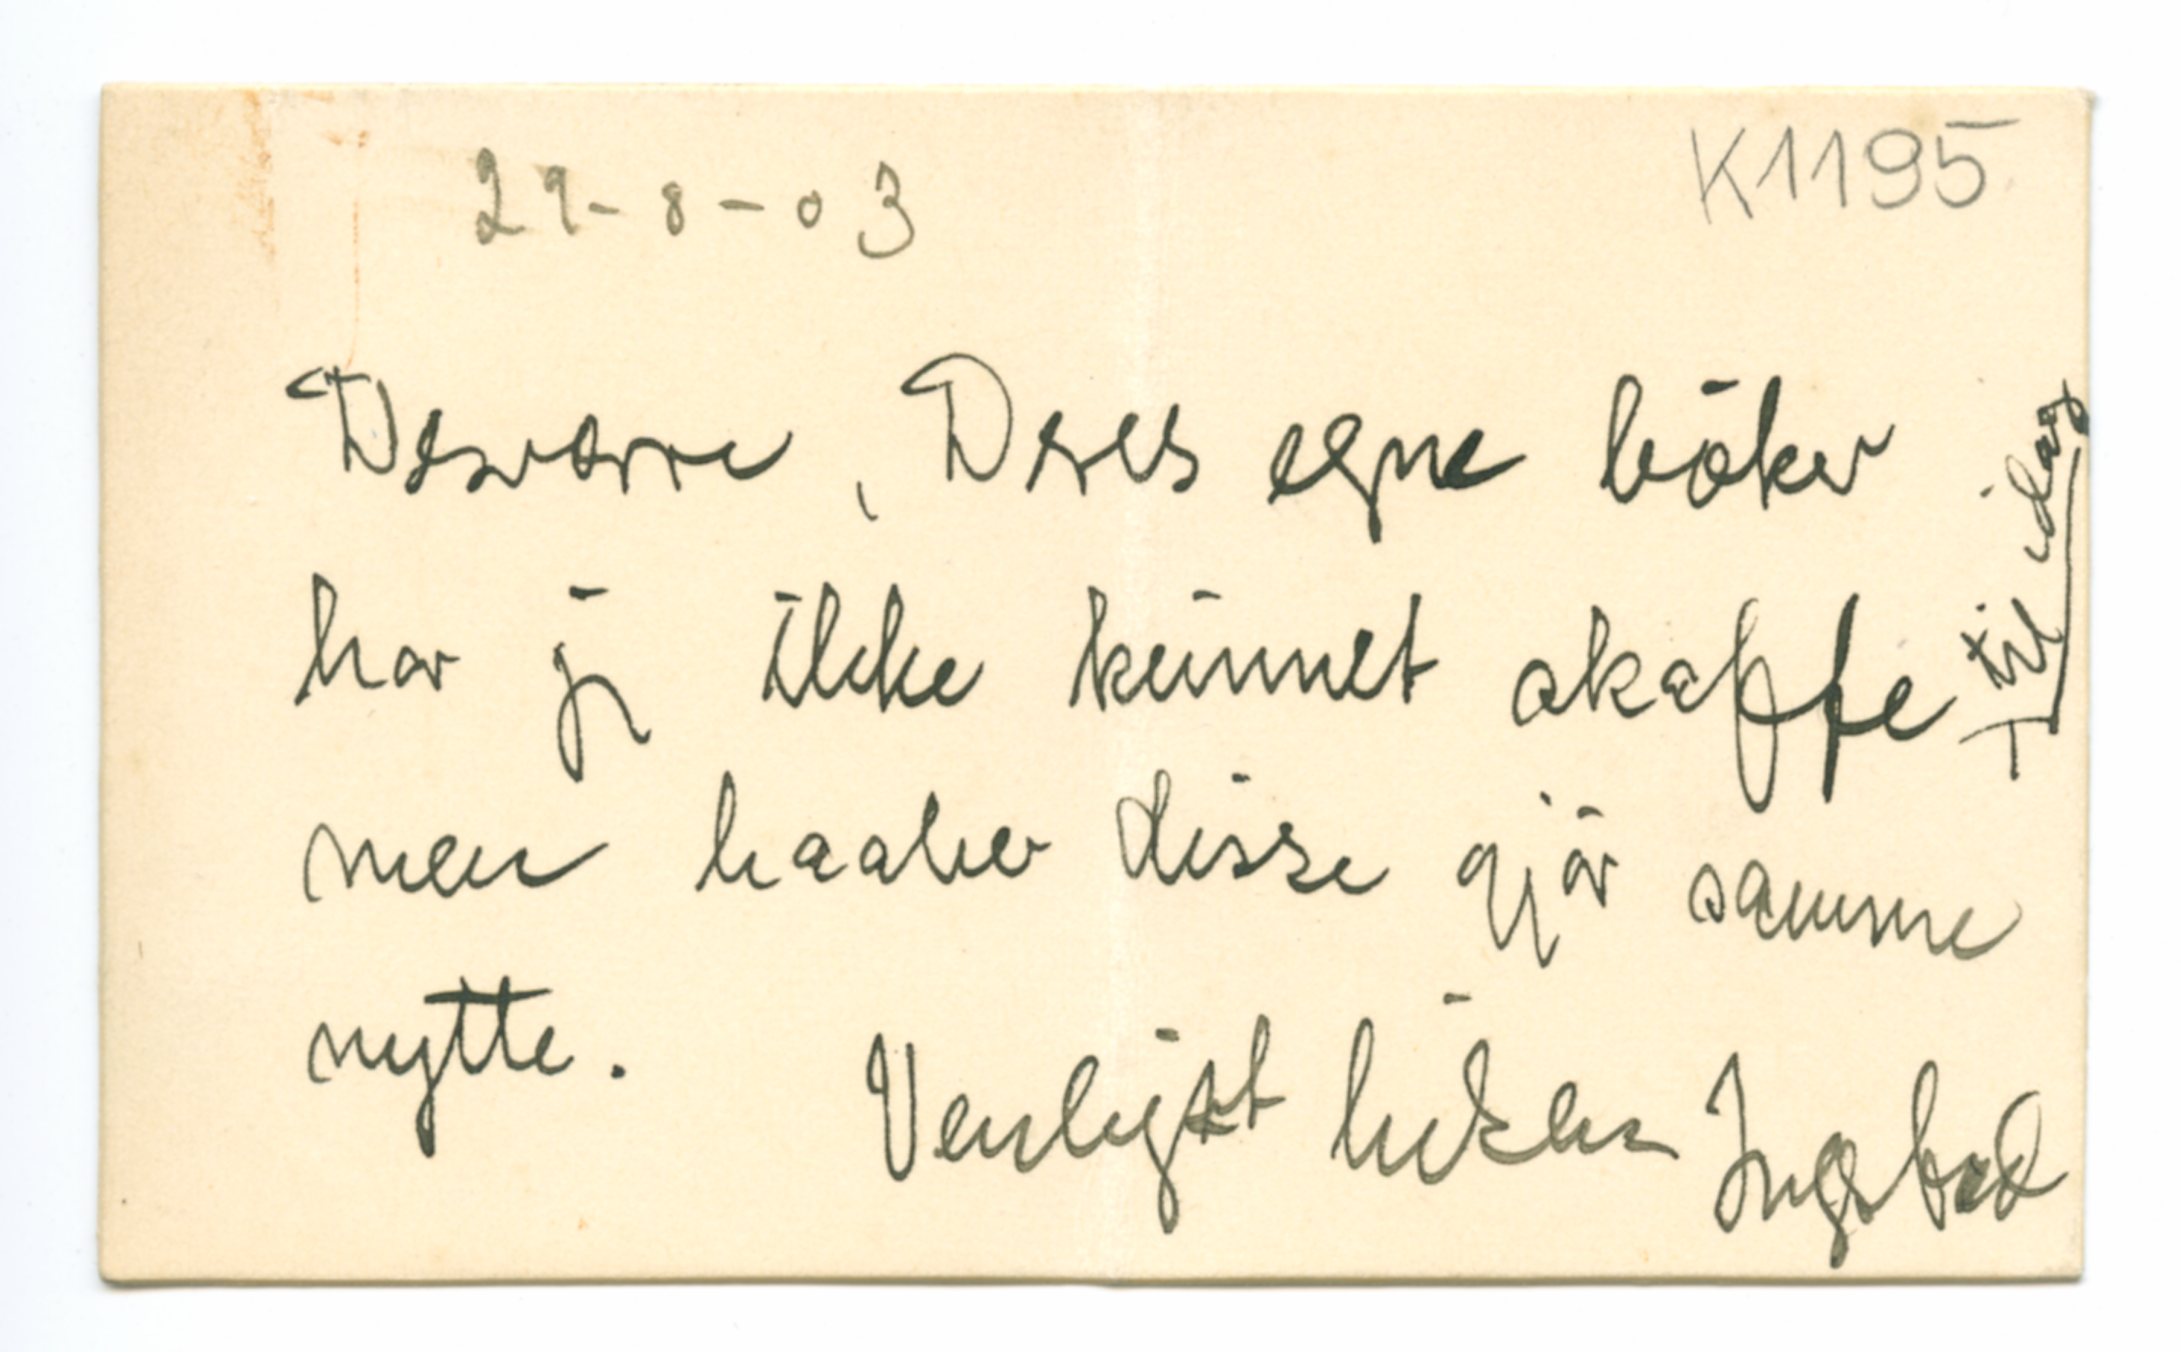 29-8-03
K1195
Desværre, Deres egne bøker
har jeg ikke kunnet skaffe
til idag
men haaber disse gjør samme
nytte.
Venligst hilsen Ingebod